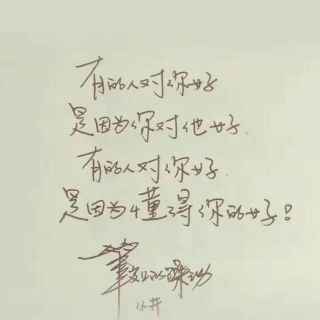 有的人对你好
是因为你对他好
有的人对你好
是因为懂得你的好!
小井